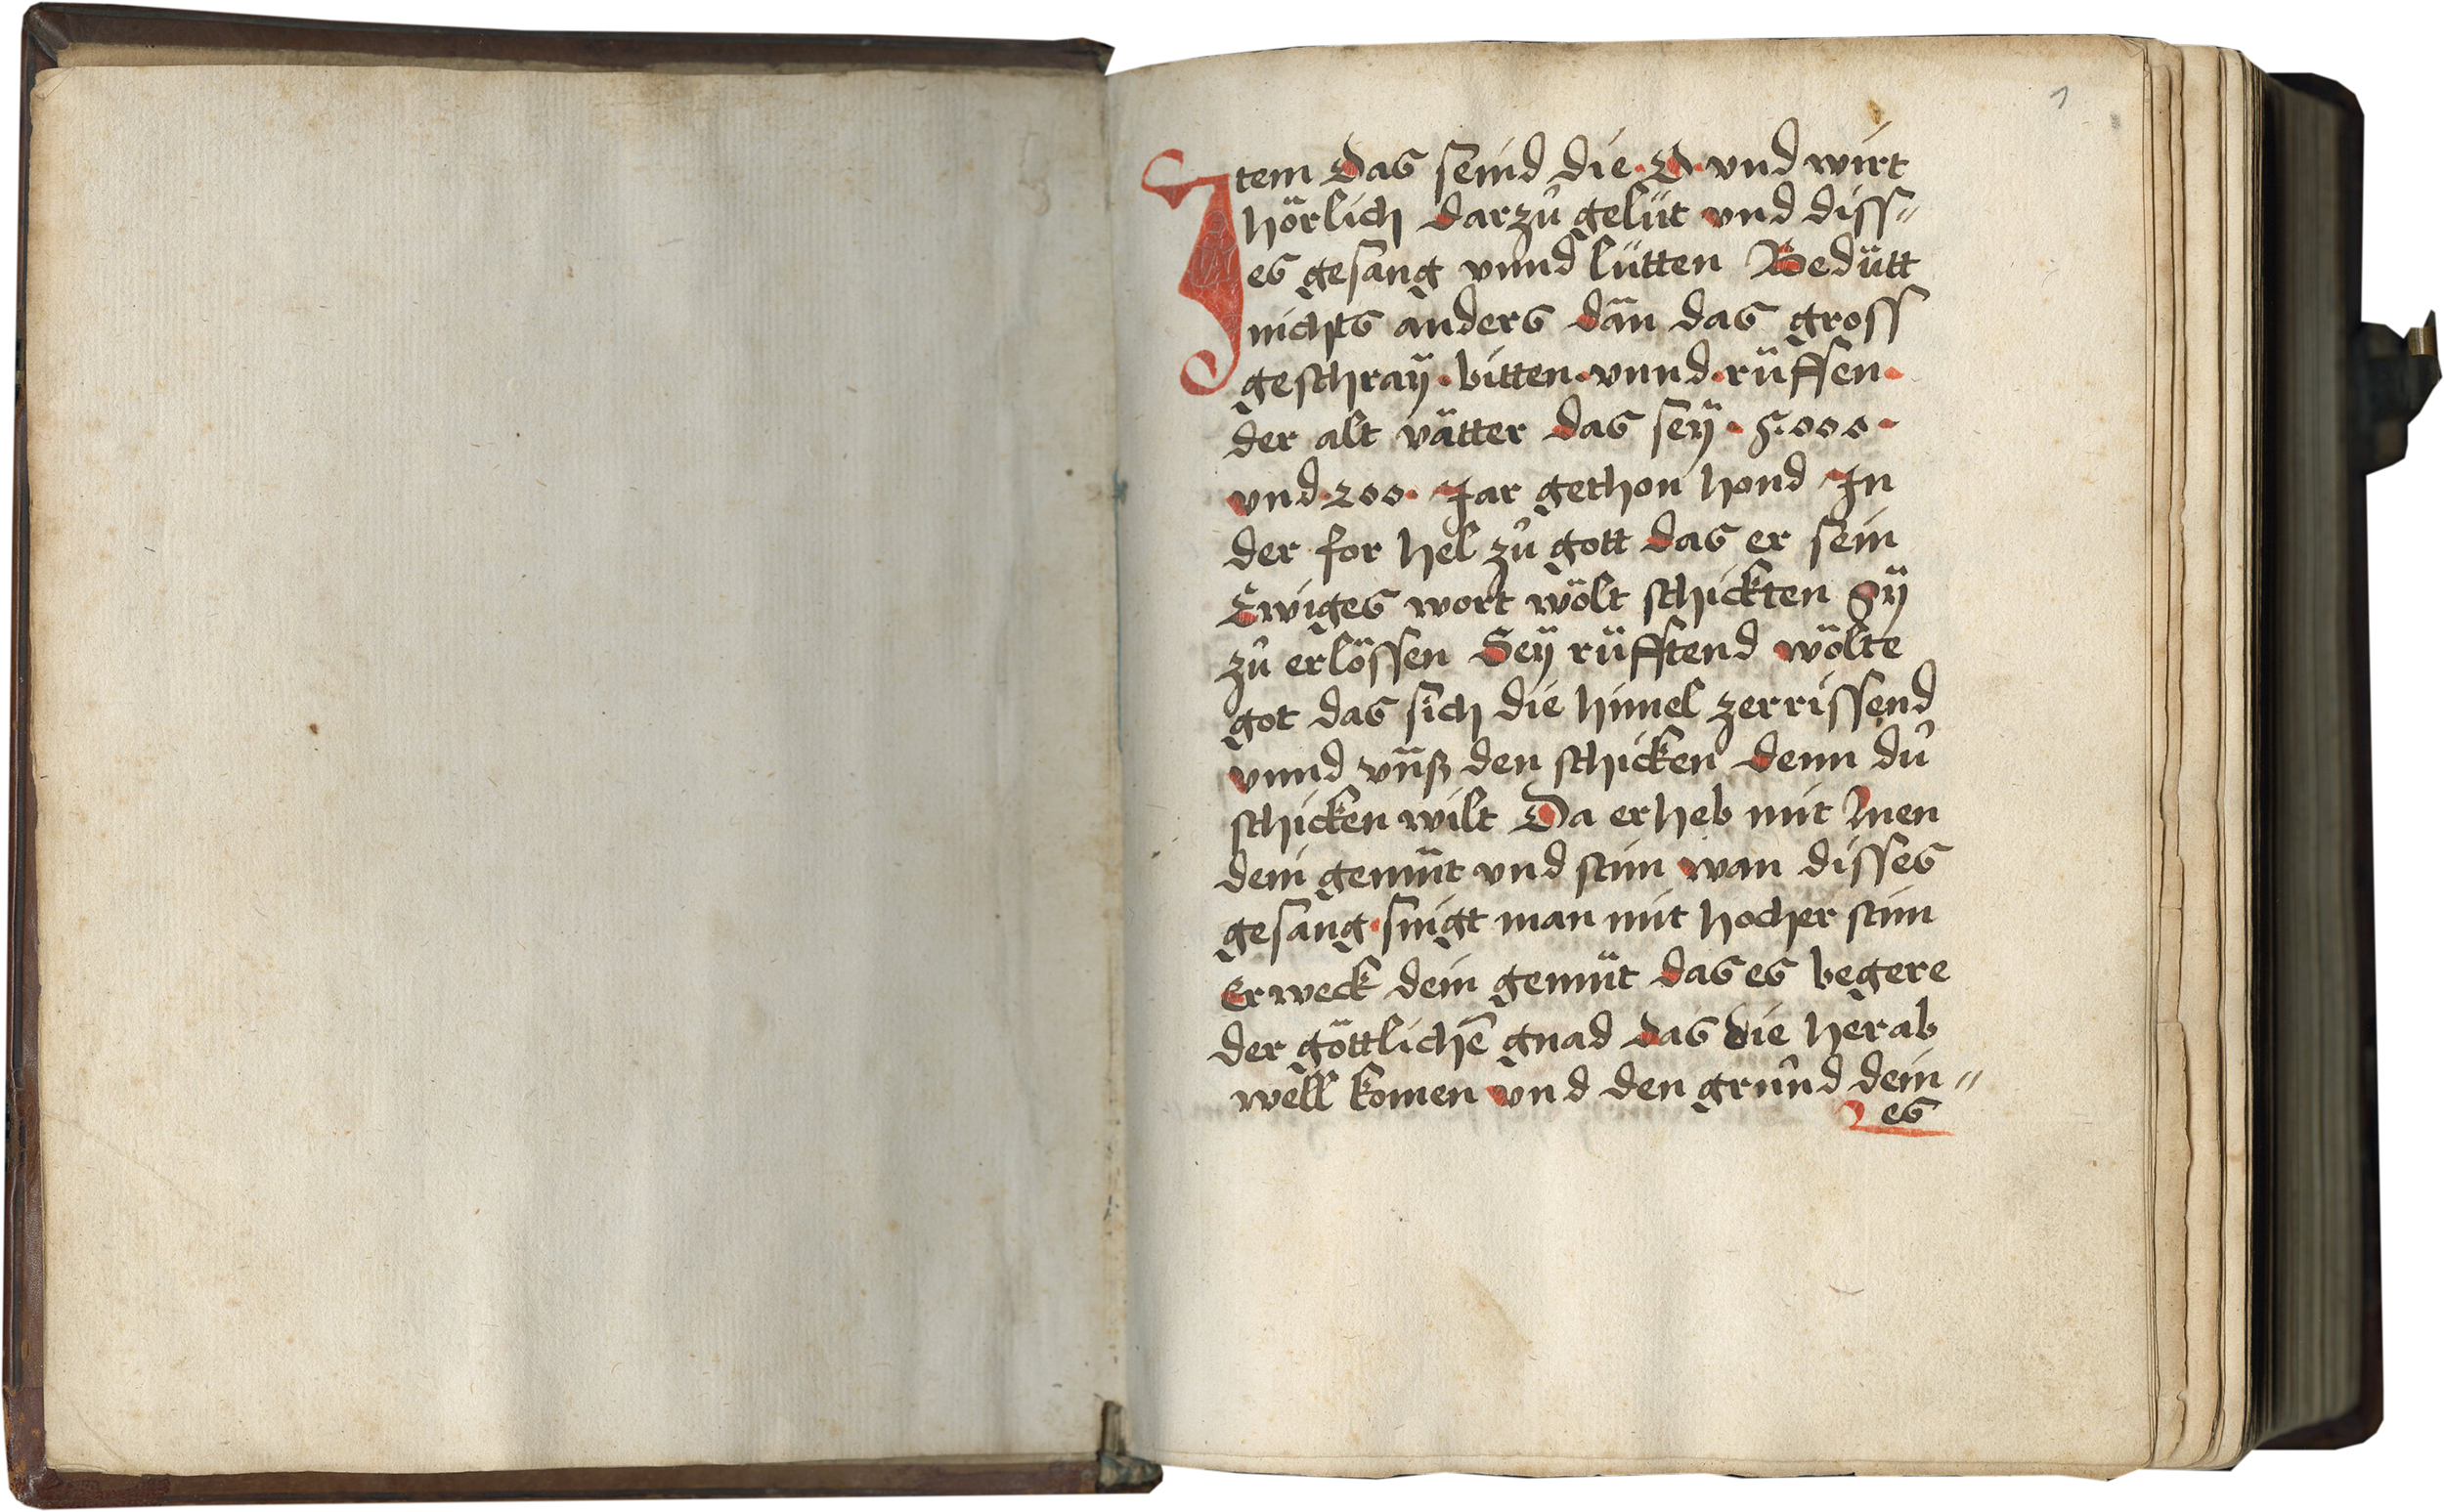 1
Item Das seind die · O · vnd wirt
hörlich darzů gelüt vnd diss〃
es gesang vnnd lütten Bedütt
nichts anders dan̄ das gross
geschraÿ · bitten · vnnd · rüffen ·
der alt vätter das seÿ · 5000 ·
vnd · 200 · Jar gethon hond In
der for hel zů gott das er sein
Ewiges wort wölt schickten Sÿ
zů erlössen Seÿ rüfftend wölte
got das sich die himel zerrissend
vnnd vnß den schicken denn dů
schicken wilt Da erheb mit Inen
dein gemüt vnd stim wan disses
gesang · singt man mit hocher stim
Erweck dein gemüt das es begere
der göttlichē gnad das die herab
well komen vnd den grůnd dein〃
es